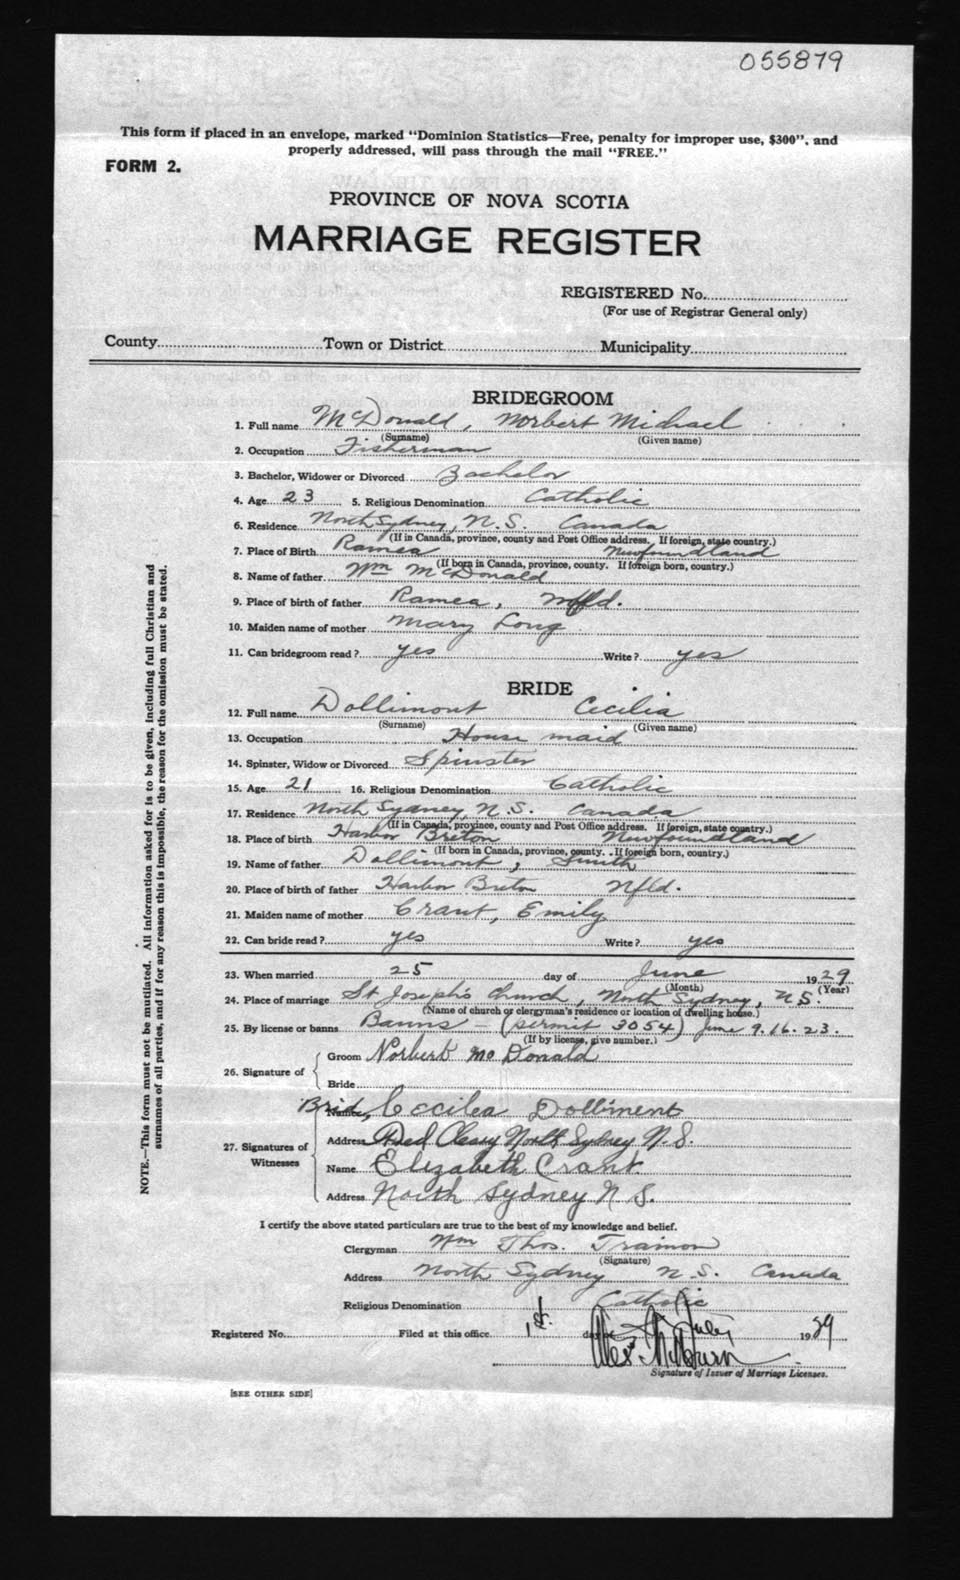 055879
This form if placed in an envelope, marked "Dominion Statistics—Free, penalty for improper use, $300", and
properly addressed, will pass through the mail "FREE."
FORM 2.
PROVINCE OF NOVA SCOTIA
MARRIAGE REGISTER
REGISTERED No.
(For use of Registrar General only)
County Town or District Municipality
BRIDEGROOM
1. Full name McDonald, Norbert Michael
(Surname) (Given name)
2. Occupation Fisherman
3. Bachelor, Widower or Divorced Bachelor
4. Age 23 5. Religious Denomination Catholic
6. Residence North Sydney, N.S. Canada
(If in Canada, province, county and Post Office address. If foreign, state country.)
7. Place of Birth Ramea Newfoundland
(If born in Canada, province, county. If foreign born, country.)
8. Name of father Wm McDonald
9. Place of birth of father Ramea, Nfld.
10. Maiden name of mother Mary Long
11. Can bridegroom read? yes Write? yes
BRIDE
12. Full name Dollimont Cecilia
(Surname) (Given name)
13. Occupation House maid
14. Spinster, Widow or Divorced Spinster
15. Age 21 16. Religious Denomination Catholic
17. Residence North Sydney, N.S. Canada
(If in Canada, province, county and Post Office address. If foreign, state country.)
18. Place of birth Harbor Breton Newfoundland
(If born in Canada, province, county. If foreign born, country.)
19. Name of father Dollimont, Smith
20. Place of birth of father Harbor Breton Nfld.
21. Maiden name of mother Crant, Emily
22. Can bride read? yes Write? yes
23. When married 25 day of June 1929
(Month) (Year)
24. Place of marriage St Joseph's Church, North Sydney, N S.
(Name of church or clergyman's residence or location of dwelling house.)
25. By license or banns Banns - (permit 3054) June 9.16.23.
(If by license, give number.)
26. Signature of Groom Norbert Mc Donald
Bride
27. Signatures of Witnesses
Brid, Name Cecilea Dolliment
Address Cleary North Sydney N.S.
Name Elizabeth Crant
Address North Sydney N S.
I certify the above stated particulars are true to the best of my knowledge and belief.
Clergyman Wm Thos. Trainor
(Signature)
Address North Sydney N.S. Canada
Religious Denomination Catholic
Registered No. Filed at this office 1st. day of July 1929
Signature of Issuer of Marriage Licenses.
[SEE OTHER SIDE]
NOTE.—This form must not be mutilated. All information asked for is to be given, including full Christian and
surnames of all parties, and if for any reason this is impossible, the reason for the omission must be stated.